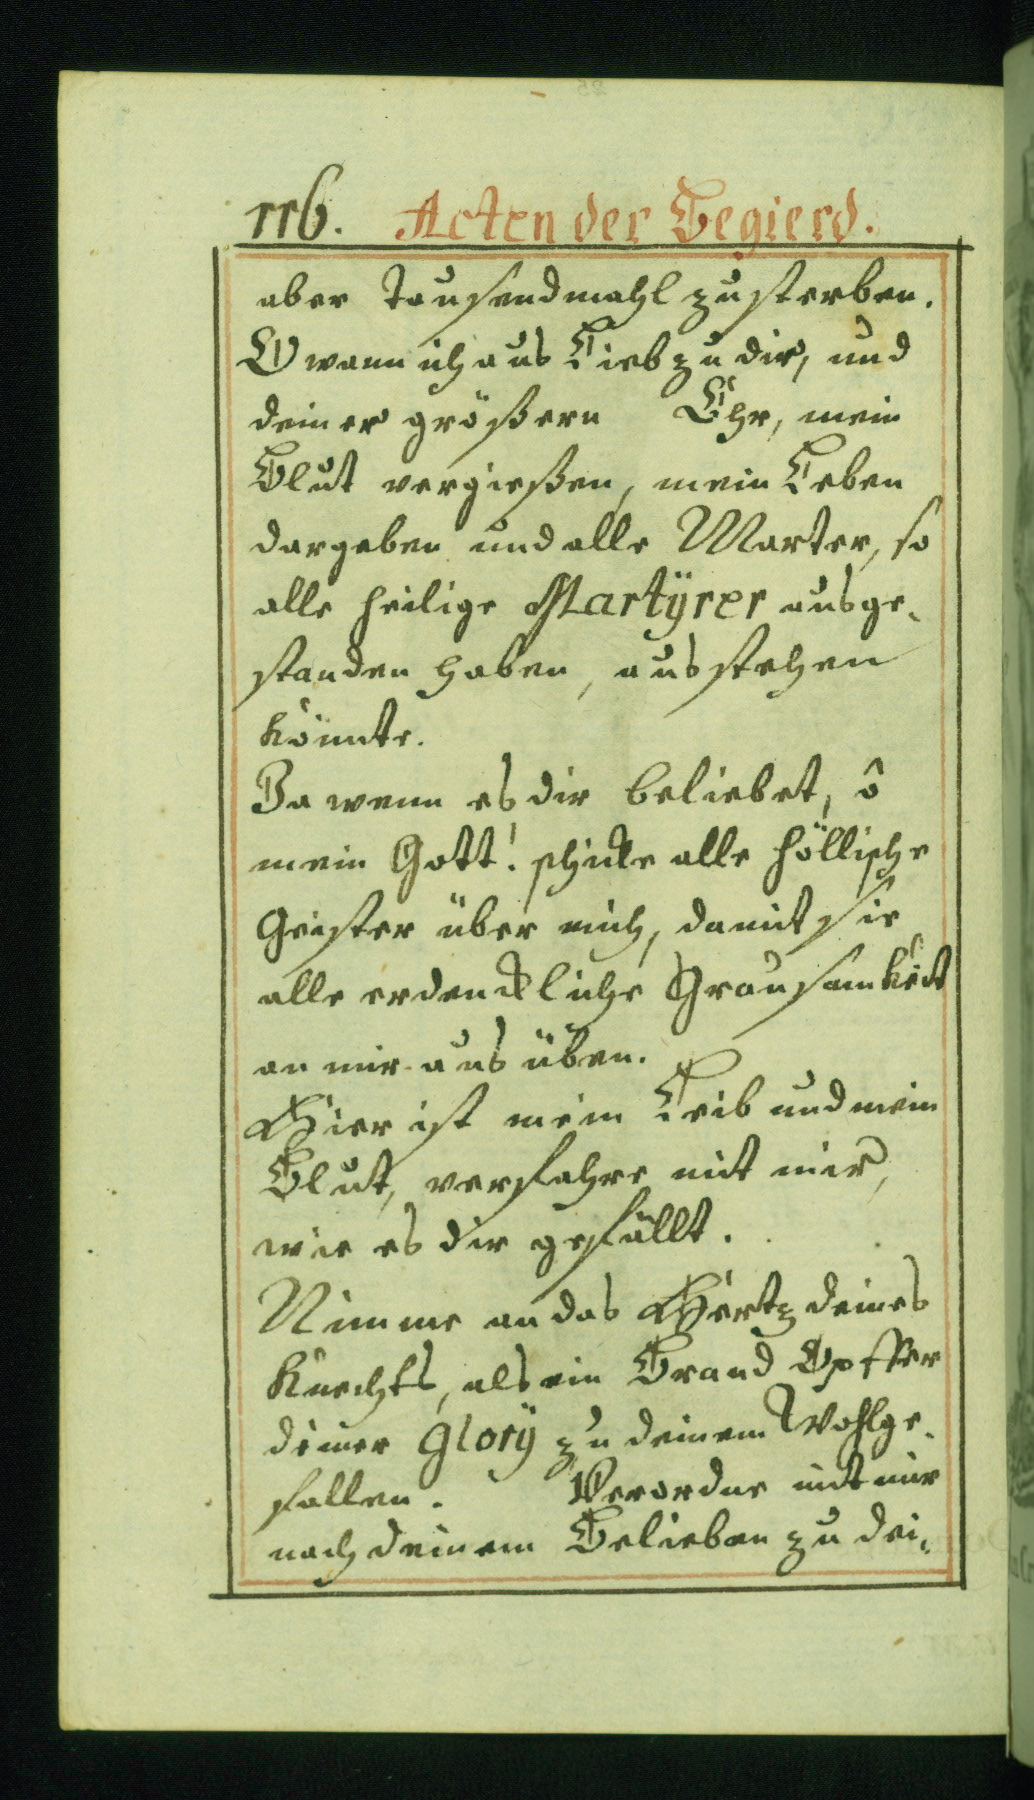 116. Acten der Begierd.
aber Tausendmahl zu sterben.
O wann ich aus Lieb zu dir, und
deiner größern Ehr, mein
Blut vergießen, mein Leben
dargeben und alle Marter, so
alle heilige Martÿrer ausge,
standen haben, ausstehen
könnte.
Ja wenn es dir beliebet, ô
mein Gott! schicke alle höllische
Geister über mich, damit sie
alle erdenckliche Grausamkeit
an mir aus üben.
Hier ist mein Leib und mein
Blut, verfahre mit mir,
wie es dir gefällt.
Nimme an das Hertz deines
Knechts, als ein Brand Opffer
deiner Glorÿ zu deinem Wohlge,
fallen. Verordne mit mir
nach deinem Belieben zu dei,